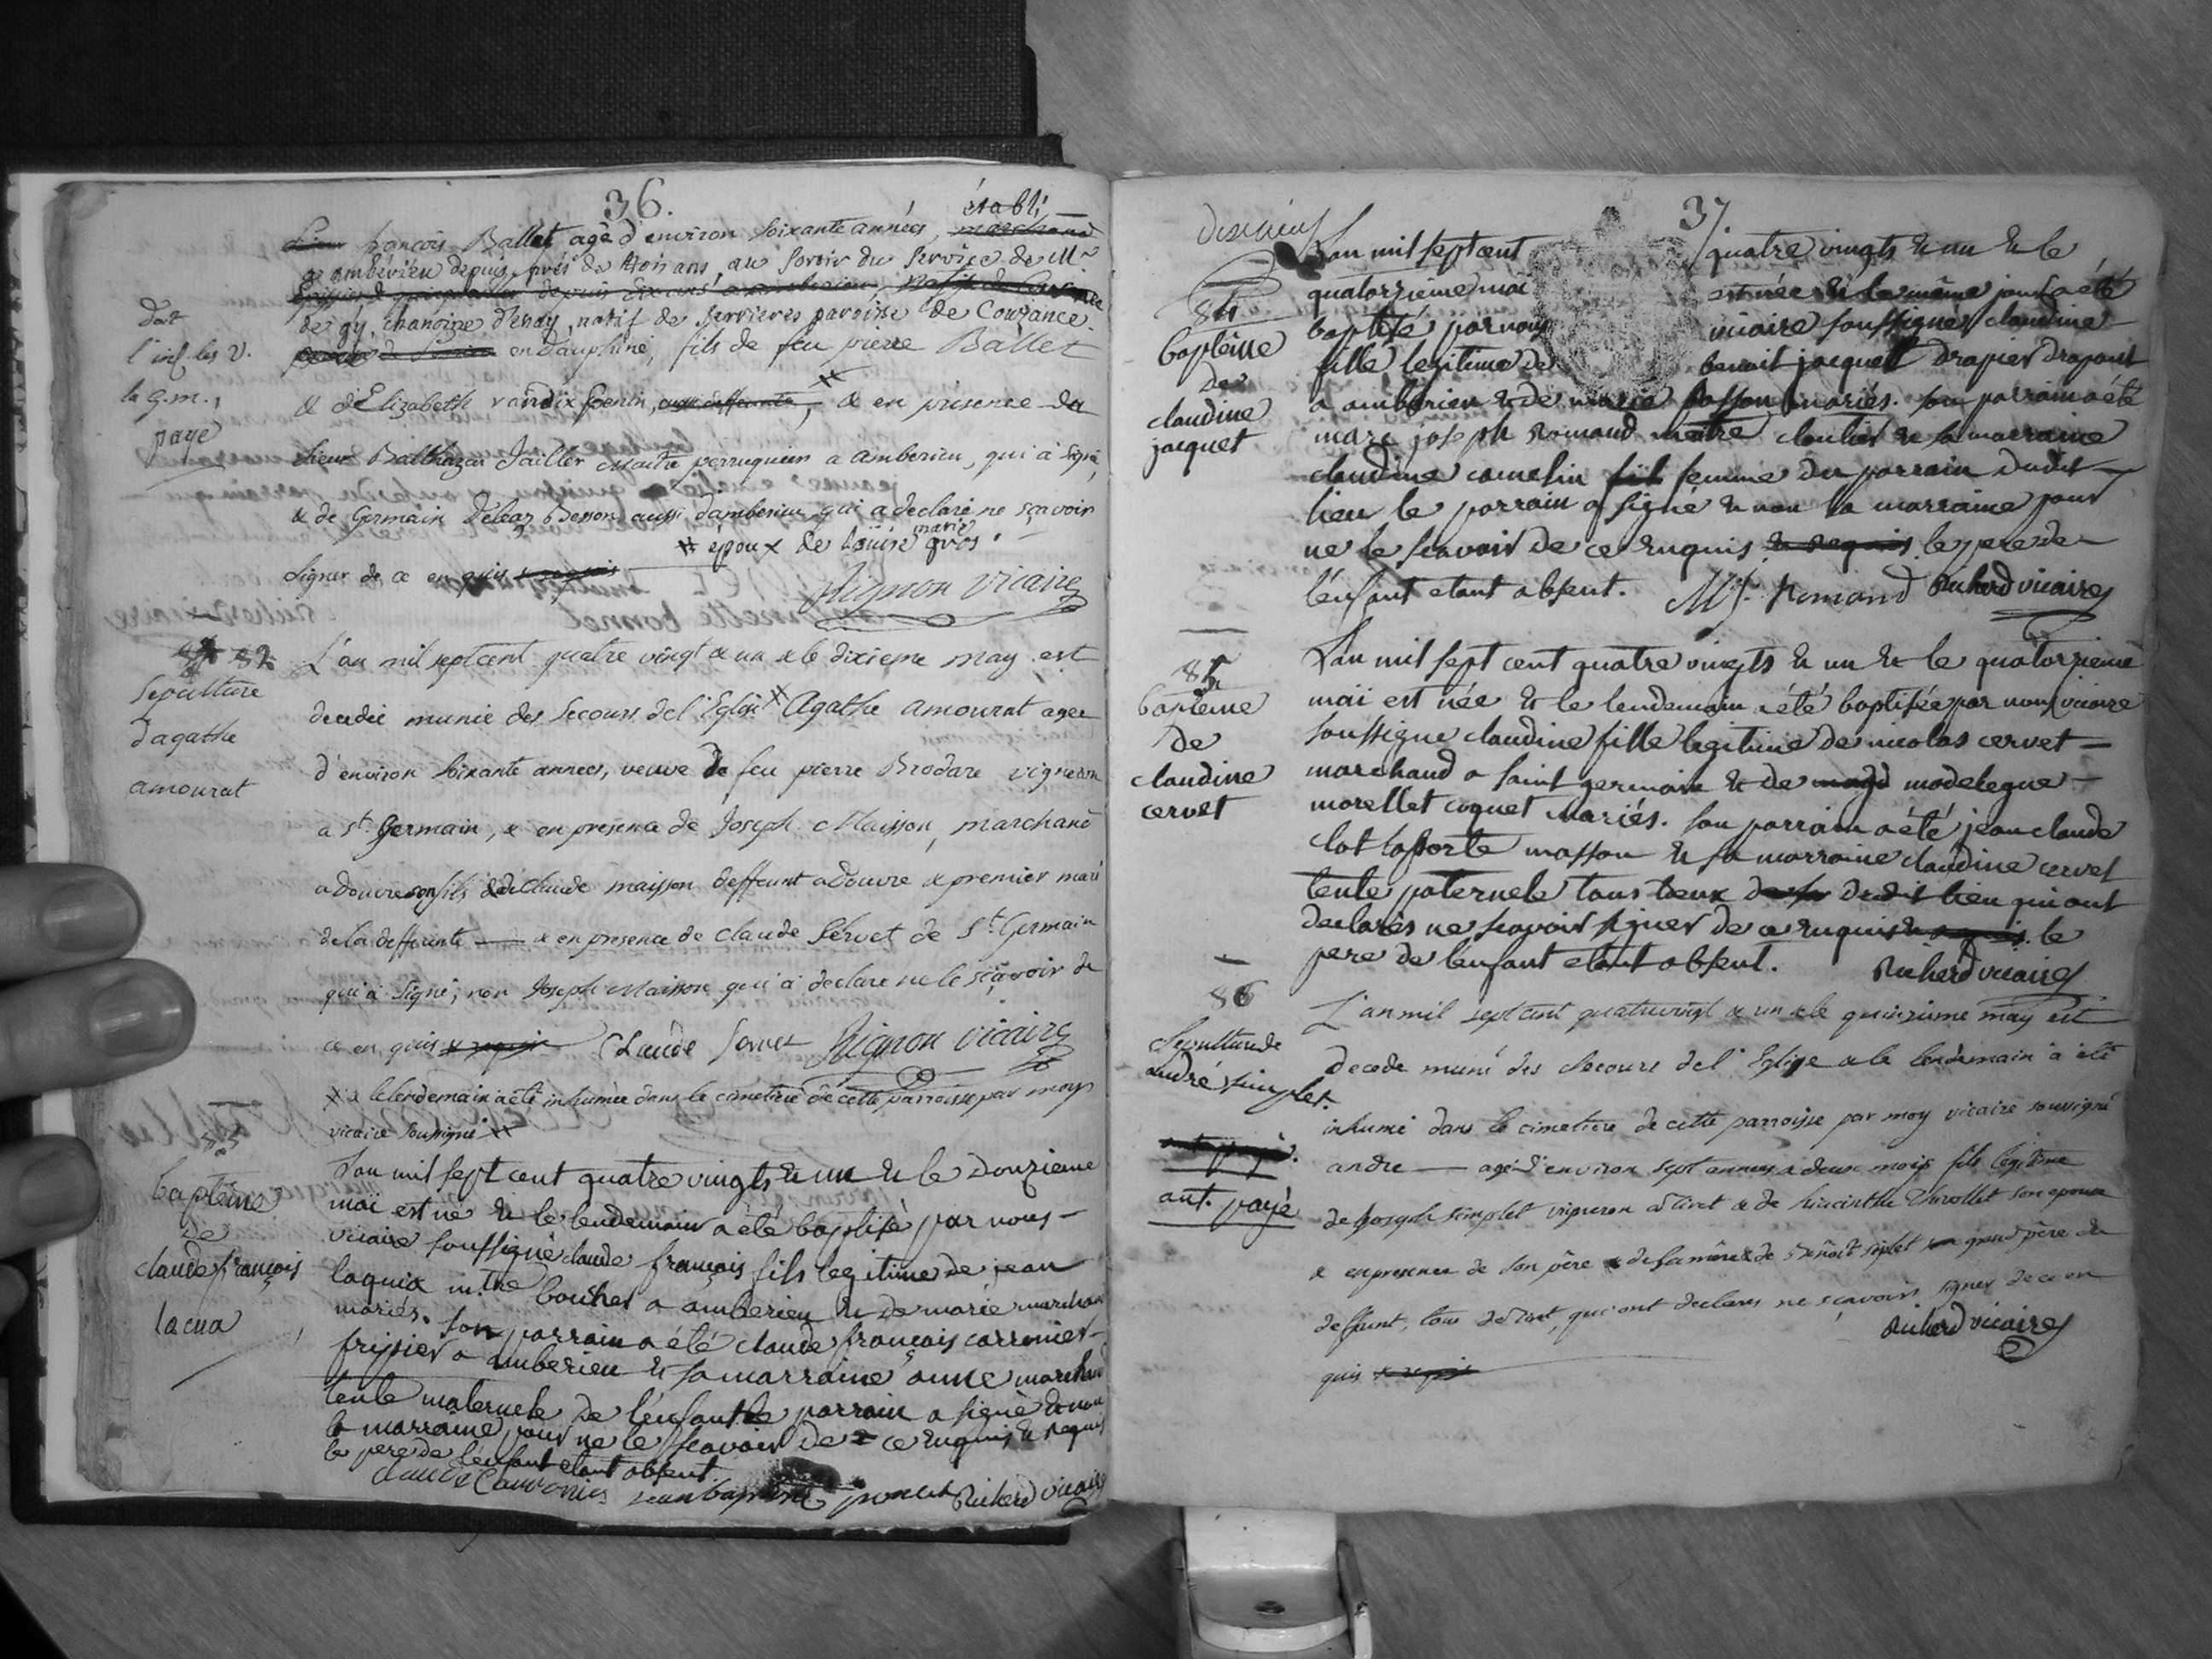 36.
établi
françois Ballet agé d'environ soixante années, marchand
a amberieu depuis près de trois ans, au sortir du service de Mr
de gy, chanoine d'enay, natif de serrieres paroisse de Courance
en Dauphiné, fils de feu pierre Ballet
& d'Elizabeth & en présence du
sieur Balthazar Jailler maitre perruquier a amberieu, qui a signé,
& de Germain Besson aussi d'amberieu qui a declaré ne sçavoir
# epoux de Louise marie gros.
signer de ce enquis & requis
Rignon vicaire
doit
l'inf. les V.
la g.m.,
payé
82
sepulture
d'agathe
amourat
L'an mil septcent quatre vingt & un & le dixieme may est
decedée munie des secours de l'Eglise # Agathe amourat agée
d'environ soixante années, veuve de feu pierre Brodare vigneron
a St Germain, & en presence de Joseph Maisson, marchand
a Douvre son fils & de Claude maisson deffunt a Douvre & premier mari
de la deffunte & en presence de claude servet de St Germain
qui a signé, non Joseph Maisson qui a declaré ne le sçavoir de
ce enquis & requis Claude servet Rignon vicaire
# & le lendemain a été inhumée dans le cimetiere de cette parroisse par moy
vicaire soussigné #
83
baptême
de
claude françois
lacua
L'an mil sept cent quatre vingts & un & le douzieme
mai est né & le lendemain a été baptisé par nous
vicaire soussigné claude françois fils legitime de jean
laquia m.tre boucher a amberieu & de marie marchand
mariés. son parrain a été claude françois carronier
fripier a amberieu & sa marraine anne marchand
tente maternele de l'enfant le parrain a signé & non
la marraine pour ne le sçavoir de ce enquis & requis
le pere de l'enfant etant absent
claude Carronier jean baptiste poncet Richerd vicaire
37
dixieme
84
baptême
de
claudine
jacquet
L'an mil sept cent quatre vingts & un & le
quatorzieme mai est née & le même jour a été
baptisé par nous vicaire soussigné claudine
fille legitime de benoit jacquet drapier drapant
a amberieu & de marie passon mariés. son parrain a été
marc joseph Romand maitre cloutier & sa marraine
claudine camelin femme du parrain dudit
lieu le parrain a signé & non la marraine pour
ne le scavoir de ce enquis & requis le pere de
l'enfant etant absent. M J. Romand Richerd vicaire
85
baptême
de
claudine
cervet
L'an mil sept cent quatre vingts & un & le quatorzieme
mai est née & le lendemain a été baptisée par nous vicaire
soussigné claudine fille legitime de nicolas cervet
marchand a saint germain & de modelegne
morellet coquet mariés. son parrain a été jean claude
lot laporte masson & sa marraine claudine cervet
tente paternele tous deux dudit lieu qui ont
declarés ne scavoir signer de ce enquis & requis. le
pere de l'enfant etant absent. Richerd vicaire
86
sepulture de
andré simplet.
ant. payé
L'an mil sept cent quatrevingt & un & le quinzieme may est
decedé muni des secours de l'Eglise & le lendemain a été
inhumé dans le cimetiere de cette parroisse par moy vicaire soussigné
andré agé d'environ sept années & deux mois fils légitime
de Joseph simplet vigneron a tiret & de hiacinthe son epouse
& en presence de son père & de sa mère & de Benoît siplet grand père du
deffunt, tous de tiret, qui ont declarés ne sçavoir signer de ce en
quis & requis
Richerd vicaire